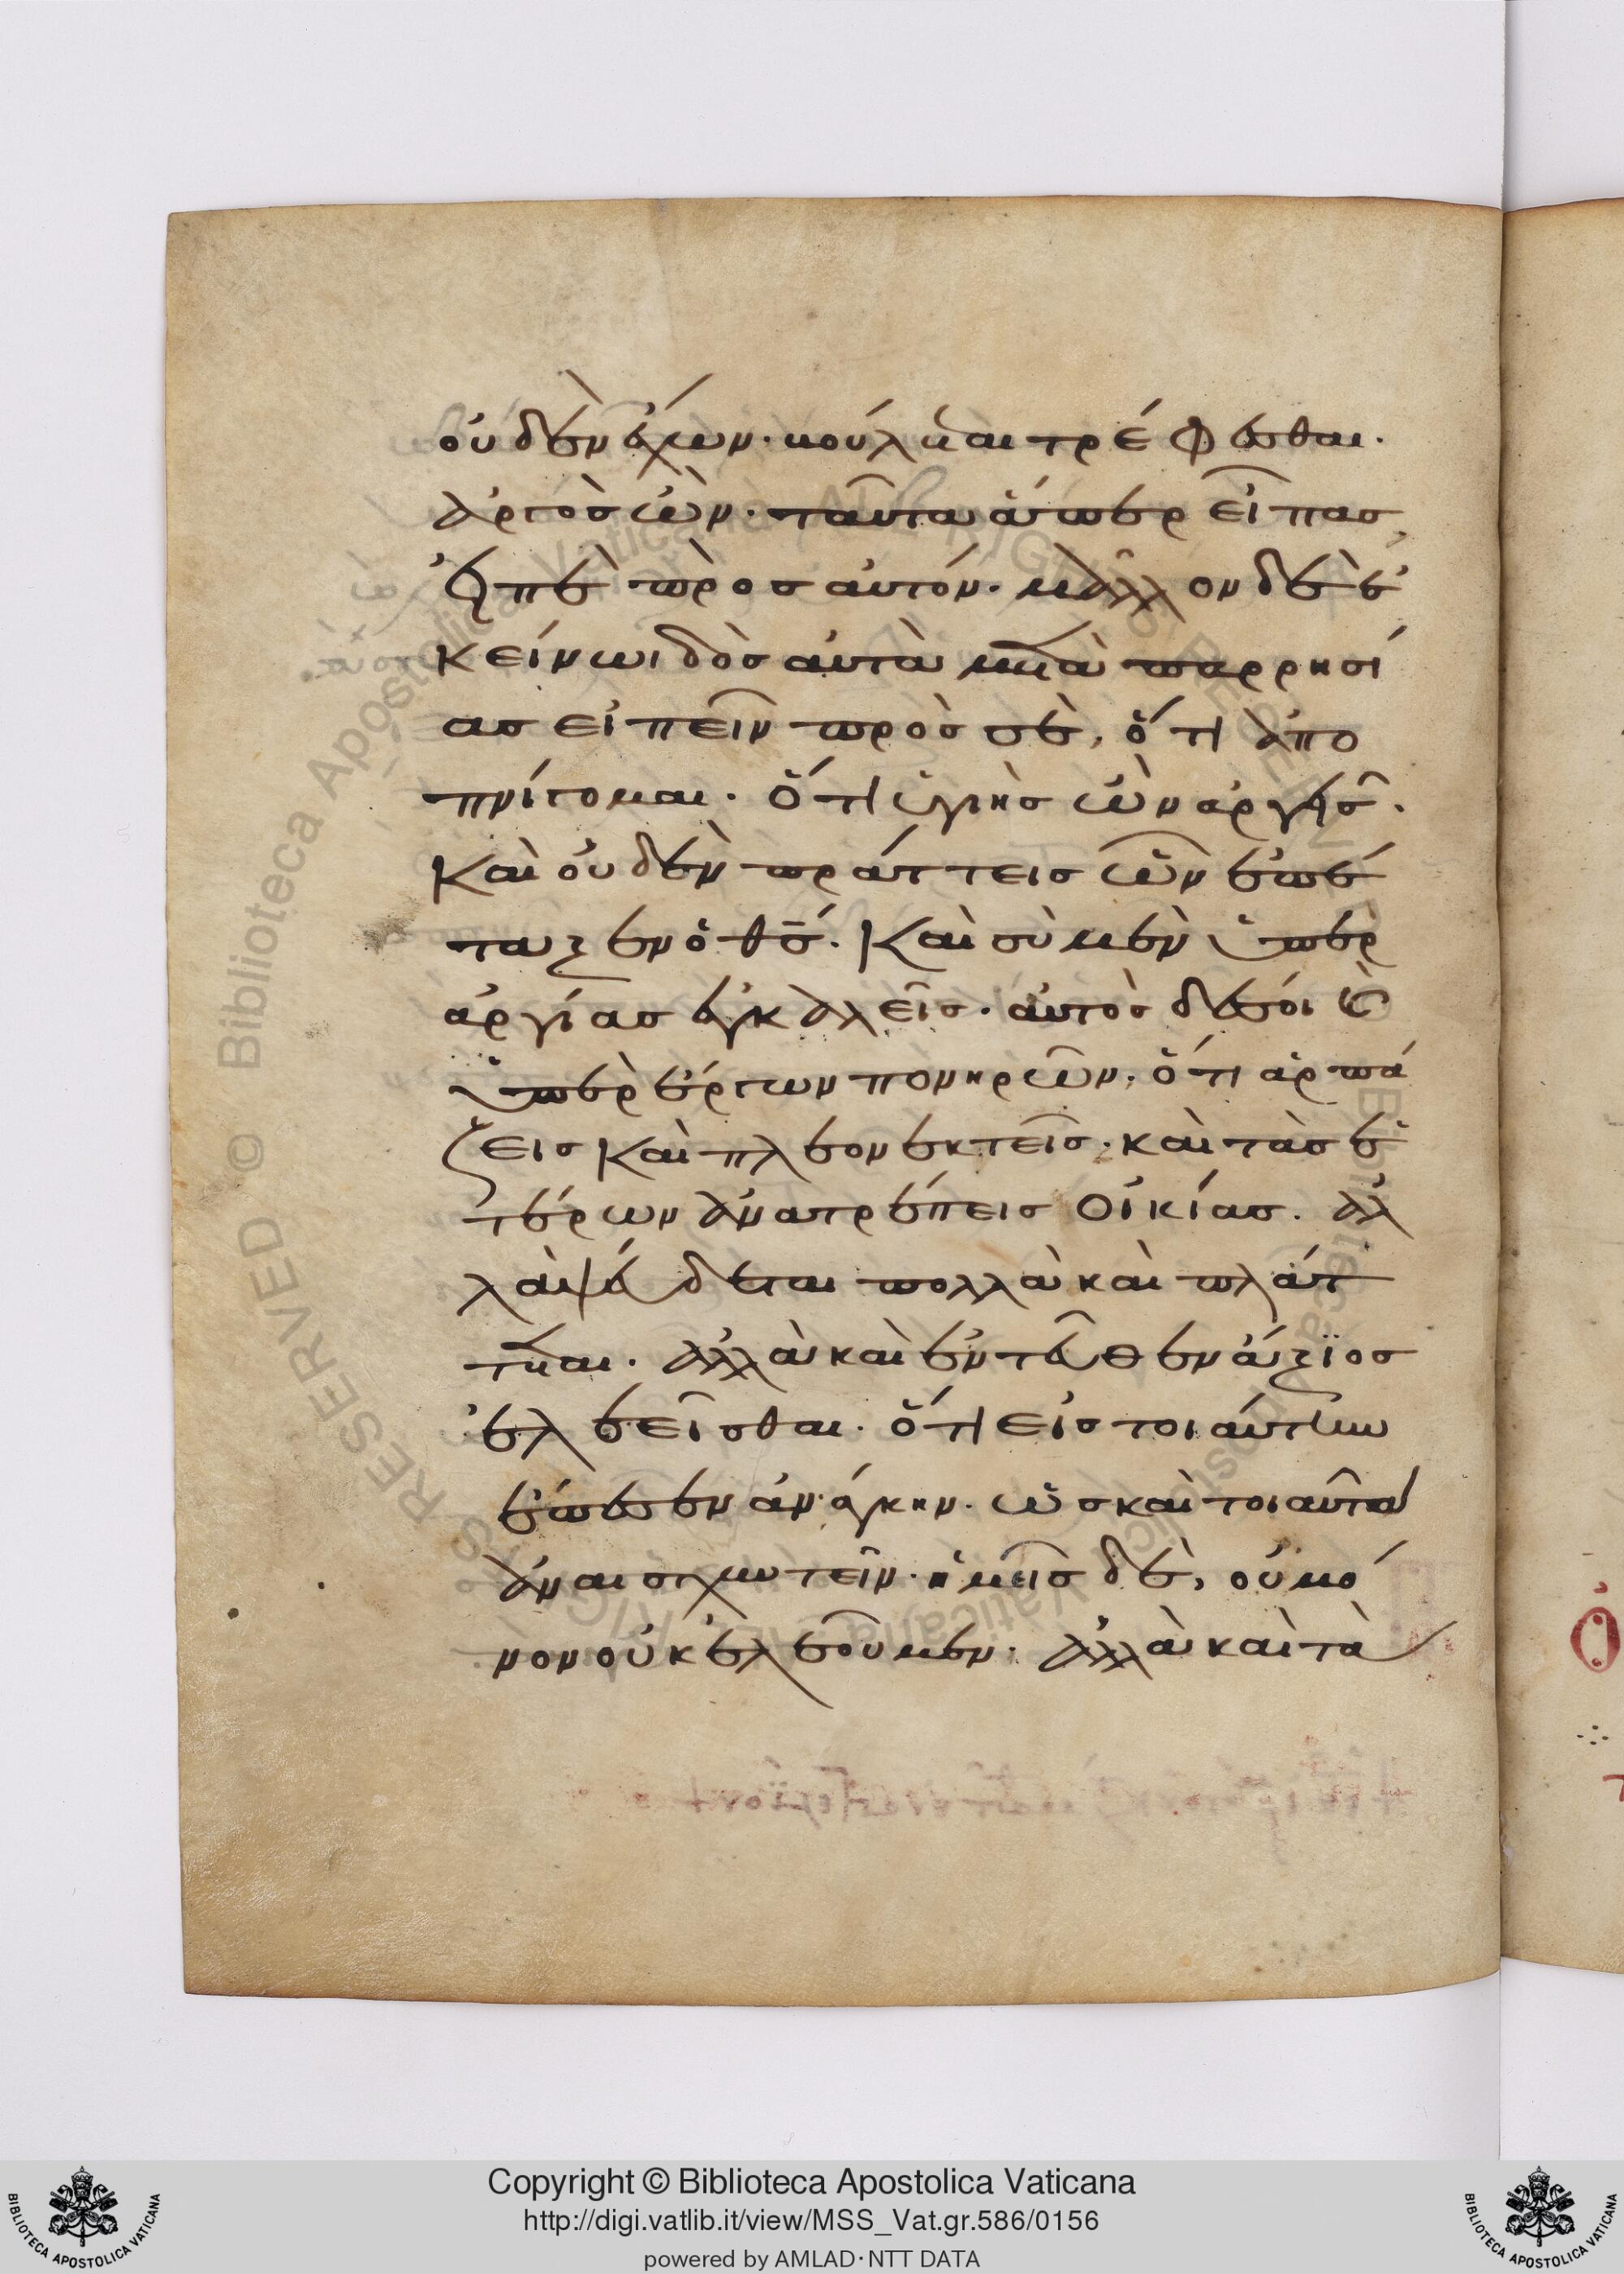 οὐδὲν ἔχων. βούλεται τρέφεσθαι.
ἀργὸς ὤν. ταῦτα ἅπερ εἶπας
εἰπὲ πρὸς αὐτόν. μᾶλλον δὲ ἐ
κείνωι δὸς αὐτὰ μετὰ παρρησί
ας εἰπεῖν πρὸς σὲ, ὅτι ἀπο
πνίγομαι. ὅτι ὑγιὴς ὢν ἀργῆς.
Καὶ οὐδὲν πράττεις ὧν ἐπέ
ταξεν ὁ θς. Καὶ σὺ μὲν ὑπὲρ
ἀργίας ἐγκαλεῖς. αὐτὸς δέ σοι
ὑπὲρ ἔργων πονηρῶν, ὅτι ἁρπά
ζεις καὶ πλεονεκτεῖς. καὶ τὰς ἑ
τέρων ἀνατρέπεις οἰκίας. ἀλ
λὰ ψεύδεται πολλὰ καὶ πλάτ
τεται. ἀλλὰ καὶ ἐντεῦθεν ἄξϊος
ἐλεεῖσθαι. ὅτι εἰς τοιαύτην
ἔπεσεν ἀνάγκην. ὡς καὶ τοιαῦτα
ἀναισχυντεῖν. ἡμεῖς δὲ, οὐ μό
νον οὐκ ἐλεοῦμεν. ἀλλὰ καὶ τὰ
RESERVED © Biblioteca Apostolica Vaticana
Copyright © Biblioteca Apostolica Vaticana
http://digi.vatlib.it/view/MSS_Vat.gr.586/0156
powered by AMLAD·NTT DATA
BIBLIOTECA APOSTOLICA VATICANA
BIBLIOTECA APOSTOLICA VATICANA